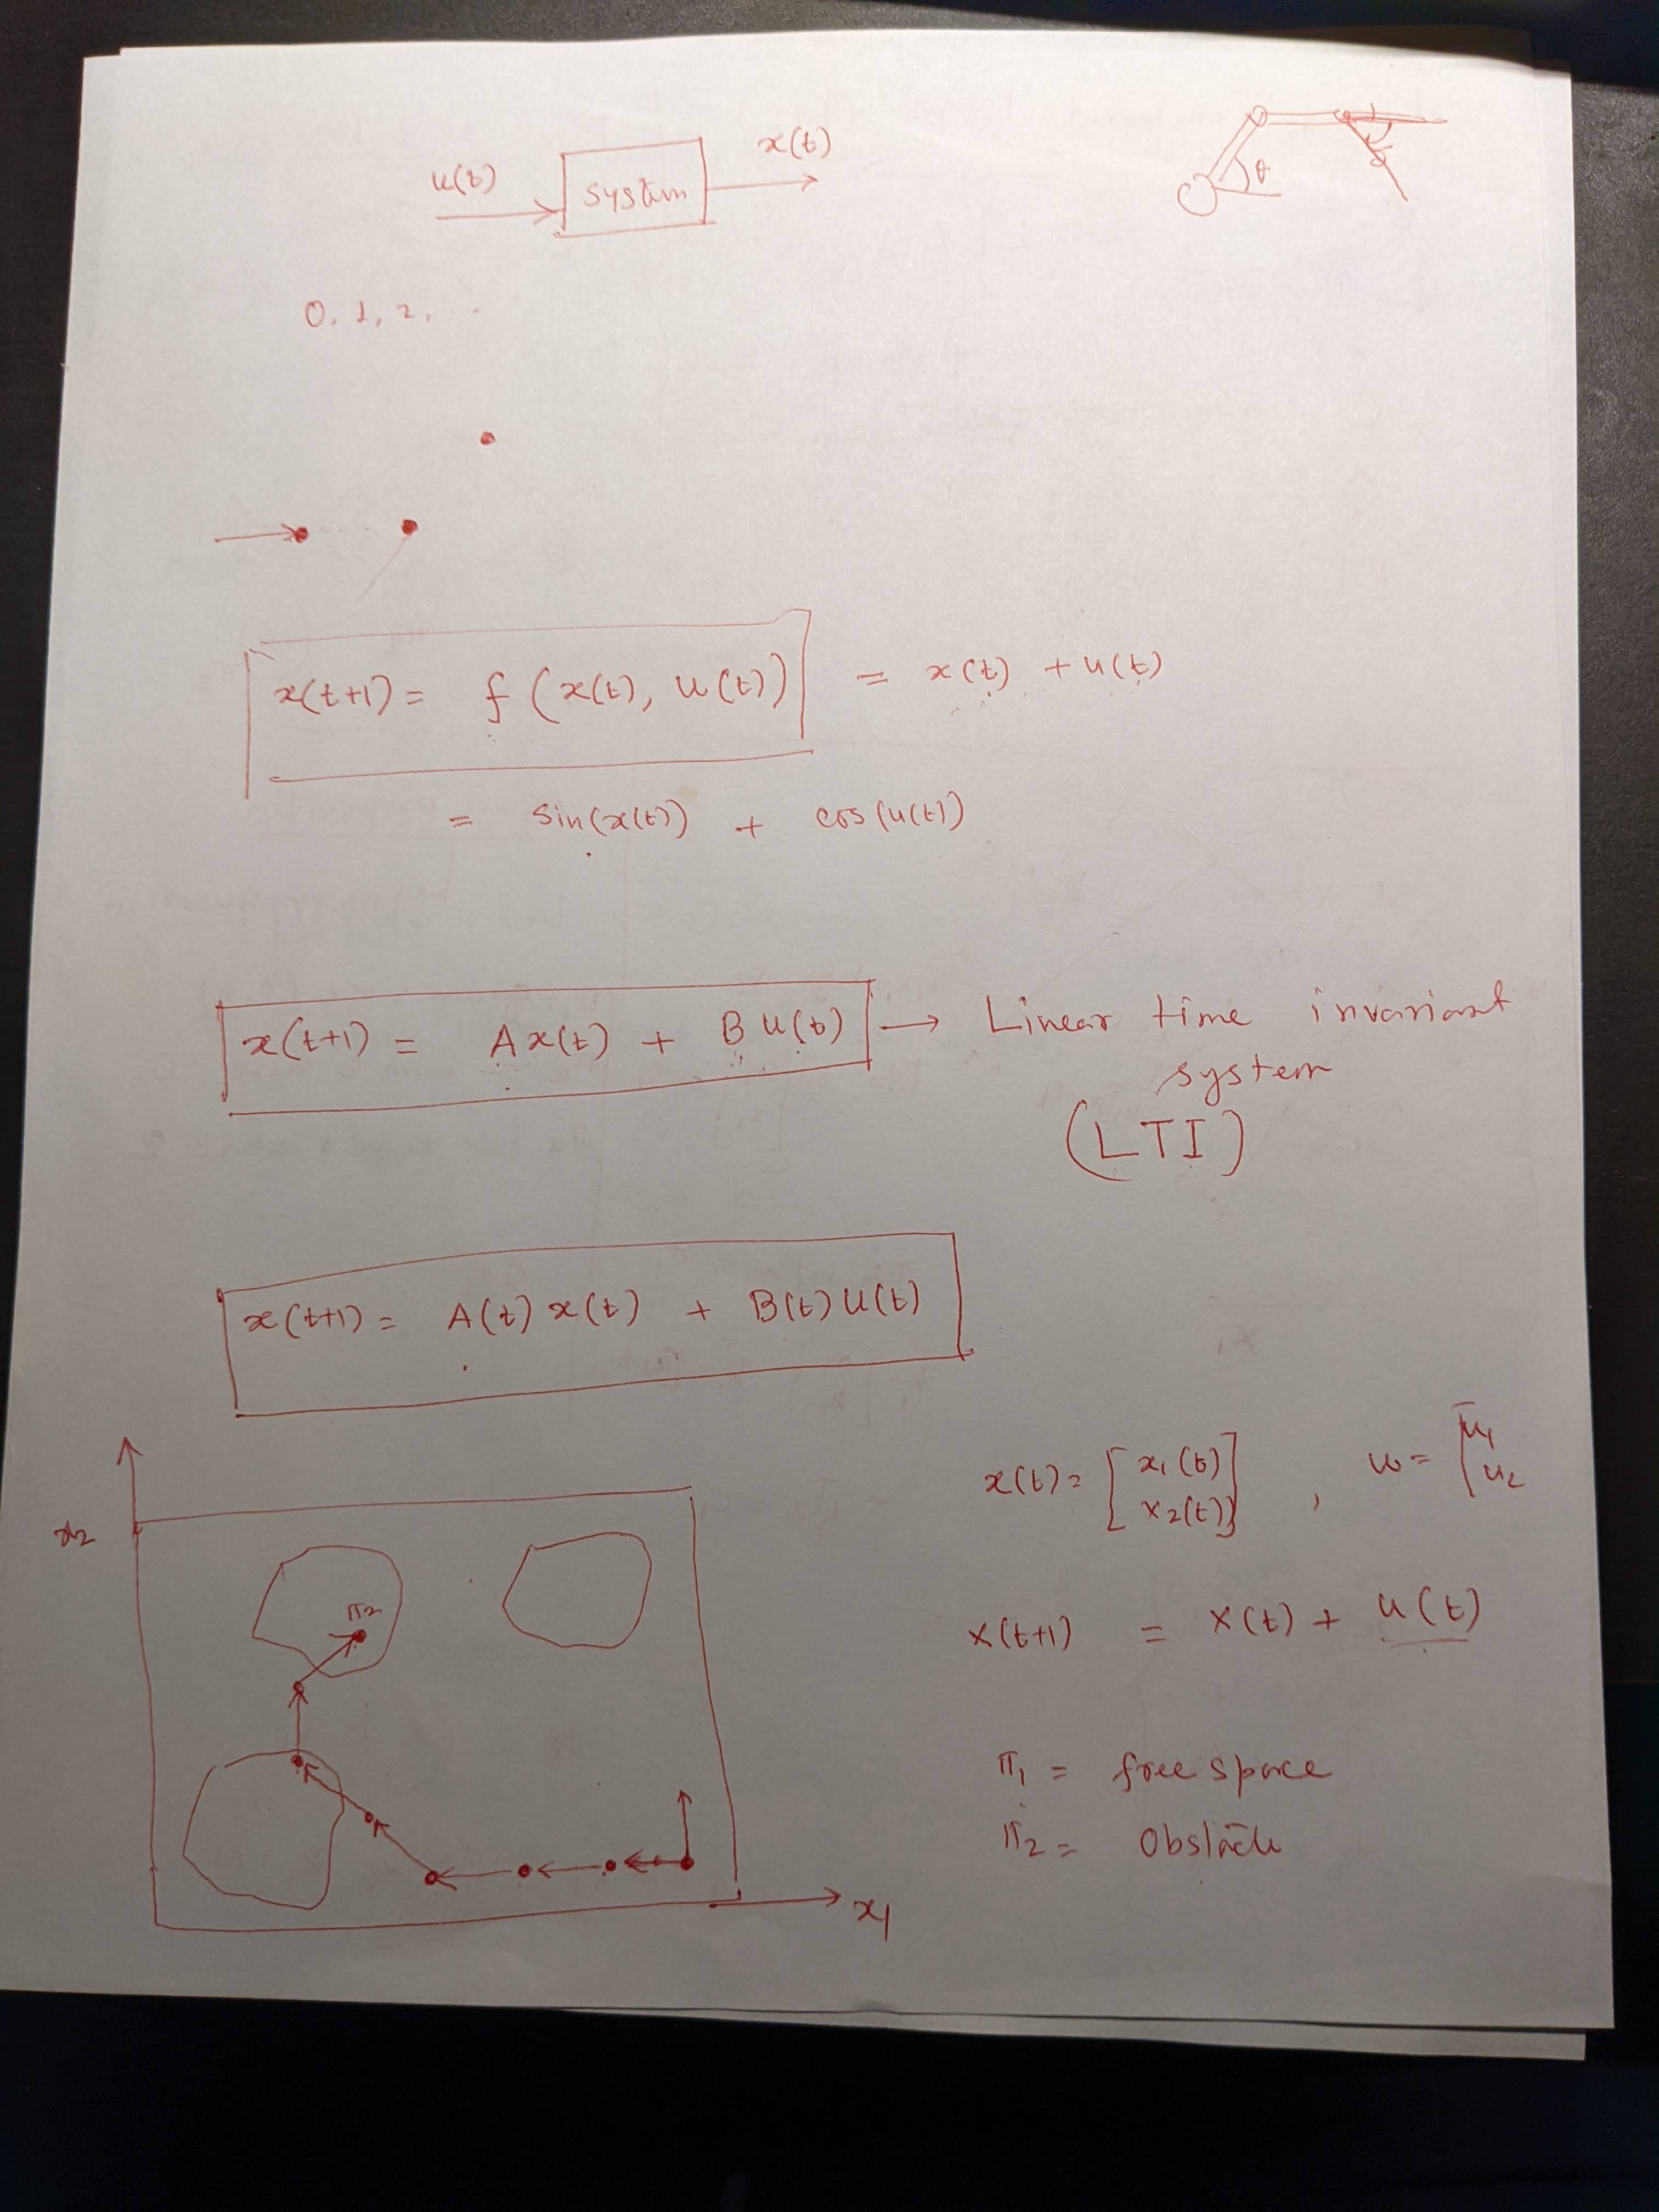 u(t) system x(t) θ
0, 1, 2, ...
x(t+1) = f(x(t), u(t)) = x(t) + u(t)
= sin(x(t)) + cos(u(t))
x(t+1) = Ax(t) + Bu(t) → Linear time invariant
system
(LTI)
x(t+1) = A(t)x(t) + B(t)u(t)
x(t) = [x1(t)
x2(t)] , u = [u1
u2
x2
π2
x(t+1) = x(t) + u(t)
π1 = free space
π2 = Obstacle
x1